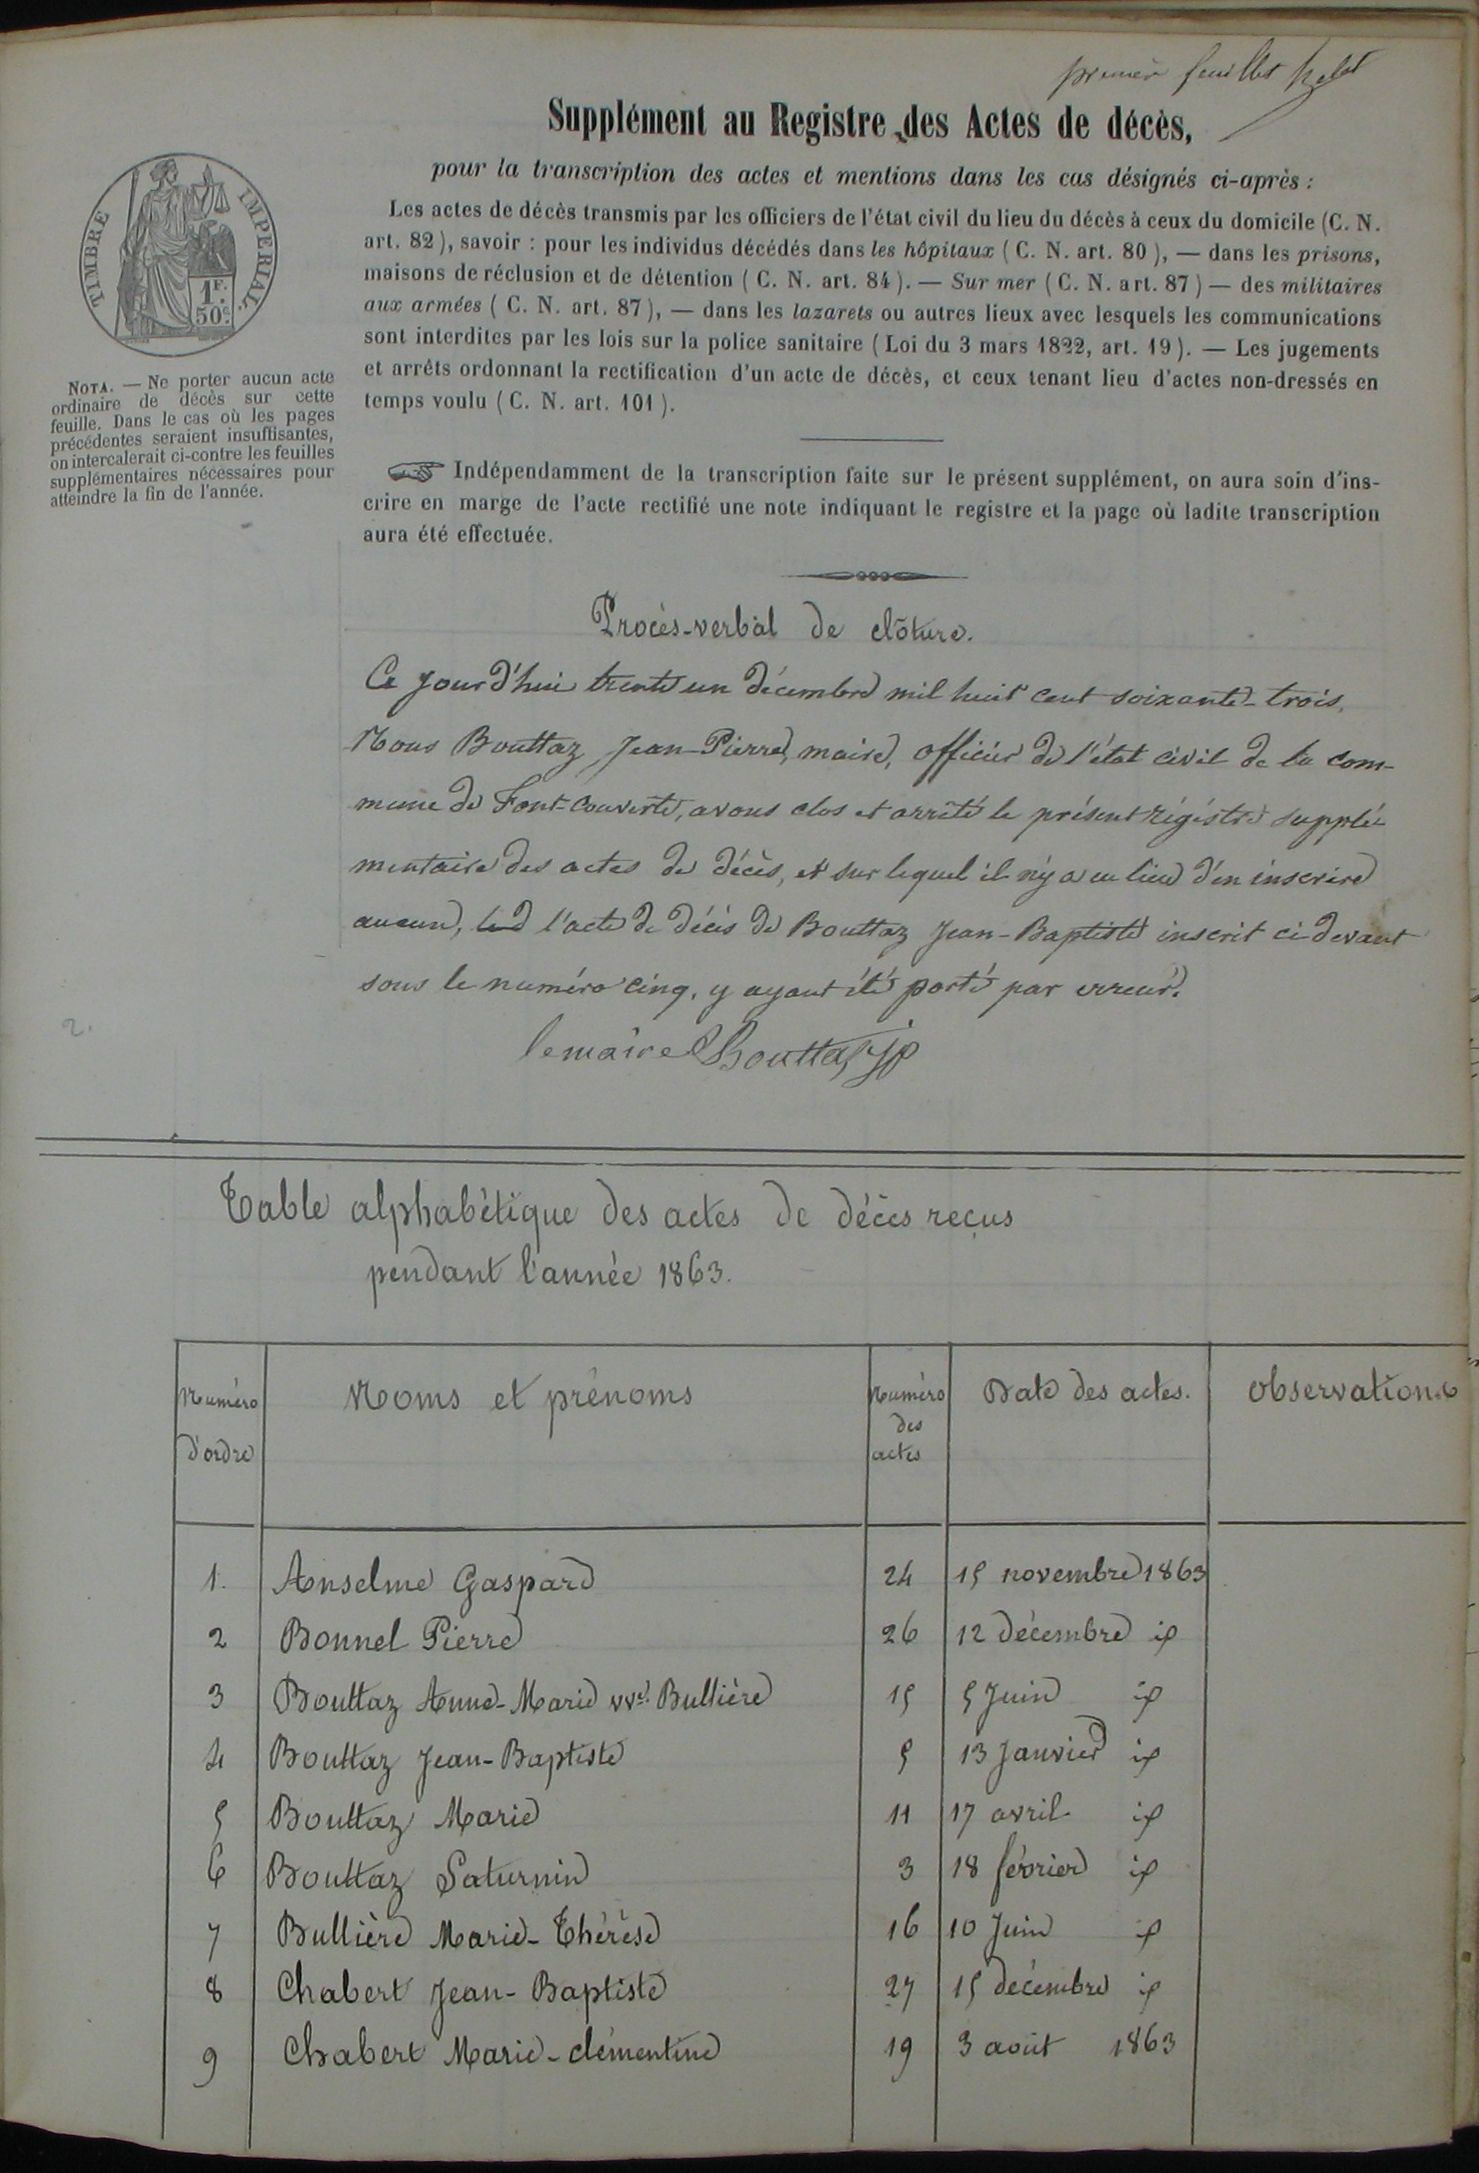 premier feuillet
Supplément au Registre des Actes de décès,
pour la transcription des actes et mentions dans les cas désignés ci-après :
Les actes de décès transmis par les officiers de l'état civil du lieu du décès à ceux du domicile (C. N.
art. 82), savoir : pour les individus décédés dans les hôpitaux (C. N. art. 80), — dans les prisons,
maisons de réclusion et de détention (C. N. art. 84). — Sur mer (C. N. art. 87) — des militaires
aux armées (C. N. art. 87), — dans les lazarets ou autres lieux avec lesquels les communications
sont interdites par les lois sur la police sanitaire (Loi du 3 mars 1822, art. 19). — Les jugements
et arrêts ordonnant la rectification d'un acte de décès, et ceux tenant lieu d'actes non-dressés en
temps voulu (C. N. art. 101).
TIMBRE IMPERIAL
1F.
50c.
NOTA. — Ne porter aucun acte
ordinaire de décès sur cette
feuille. Dans le cas où les pages
précédentes seraient insuffisantes,
on intercalerait ci-contre les feuilles
supplémentaires nécessaires pour
atteindre la fin de l'année.
☞ Indépendamment de la transcription faite sur le présent supplément, on aura soin d'ins-
crire en marge de l'acte rectifié une note indiquant le registre et la page où ladite transcription
aura été effectuée.
Procès-verbal de clôture.
Ce jourd'hui trente un décembre mil huit cent soixante-trois,
Nous Bouttaz Jean-Pierre, maire, officier de l'état civil de la com-
mune de Font-Couverte, avons clos et arrêté le présent régistre supplé-
mentaire des actes de décès, et sur lequel il n'y a eu lieu d'en inscrire
aucun, l'acte de décès de Bouttaz Jean-Baptiste inscrit ci devant
sous le numéro cinq, y ayant été porté par erreur.
le maire Bouttaz jp
2.
Table alphabétique des actes de décès reçus
pendant l'année 1863.
Numéro d'ordre | Noms et prénoms | Numéro des actes | Date des actes. | Observations
1. Anselme Gaspard 24 15 novembre 1863
2 Bonnel Pierre 26 12 décembre id
3 Bouttaz Anne-Marie vve. Bullière 15 5 Juin id
4 Bouttaz Jean-Baptiste 5 13 Janvier id
5 Bouttaz Marie 11 17 avril id
6 Bouttaz Saturnin 3 18 février id
7 Bullière Marie-Thérèse 16 10 Juin id
8 Chabert Jean-Baptiste 27 15 décembre id
9 Chabert Marie-clémentine 19 3 août 1863